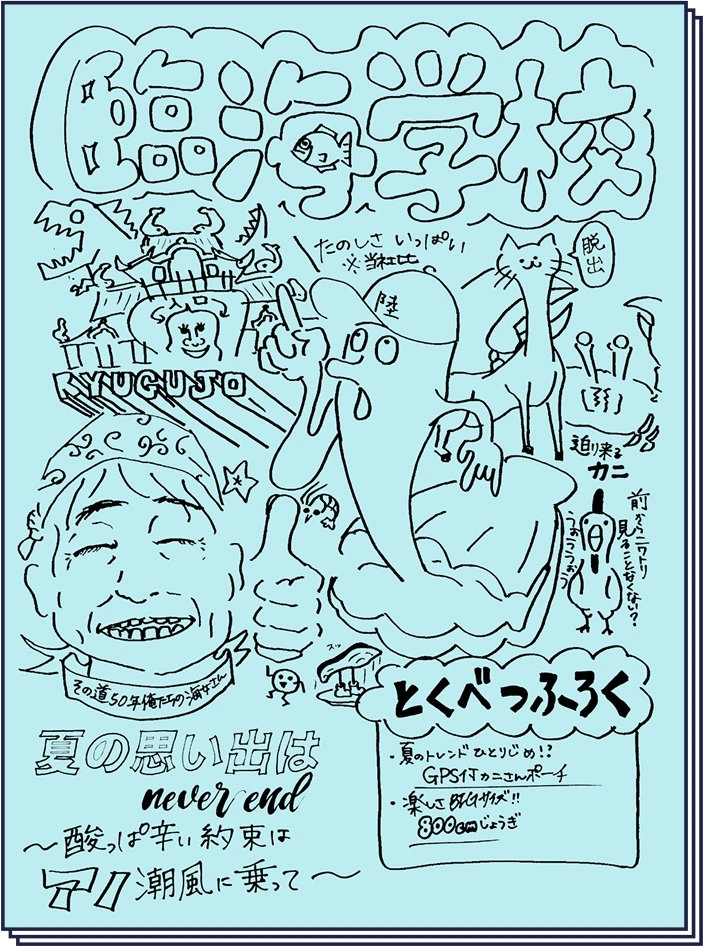 臨海学校
たのしさ いっぱい
※当社比
脱出
陸
RYUGUJO
迫り来る
カニ
前からニワトリ
見ることなくない?
うぉうつぉう
その道50年俺たちの海女さん
とくべつふろく
・夏のトレンドひとりじめ!?
GPS付カニさんポーチ
・楽しさBIGサイズ!!
800cmじょうぎ
夏の思い出は
never end
～酸っぱ辛い約束は
アノ潮風に乗って～